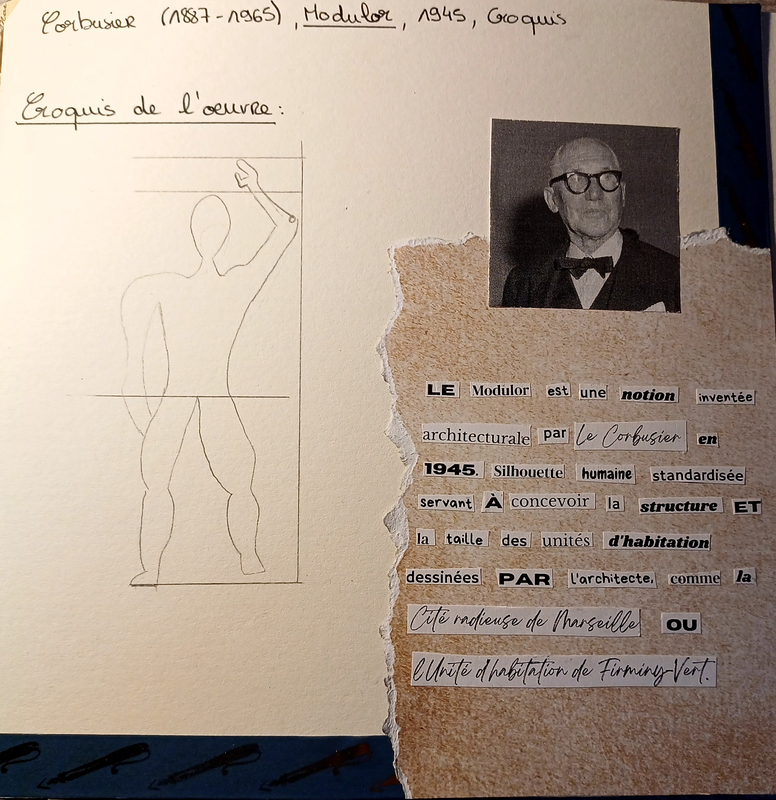 Corbusier (1887-1965), Modulor, 1945, Croquis
Croquis de l'oeuvre :
LE Modulor est une notion inventée
architecturale par Le Corbusier en
1945. Silhouette humaine standardisée
servant À concevoir la structure ET
la taille des unités d'habitation
dessinées PAR l'architecte, comme la
Cité radieuse de Marseille OU
l'Unité d'habitation de Firminy-Vert.